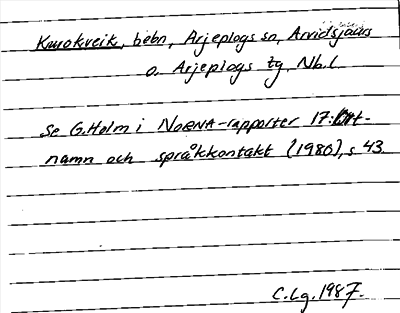 Kurrokveik, bebn, Arjeplogs sn, Arvidsjaurs
o. Arjeplogs tg, Nb.l.
Se G.Holm i NORNA-rapporter 17: Ort-
namn och språkkontakt (1980), s 43.
C.Lg. 1987.